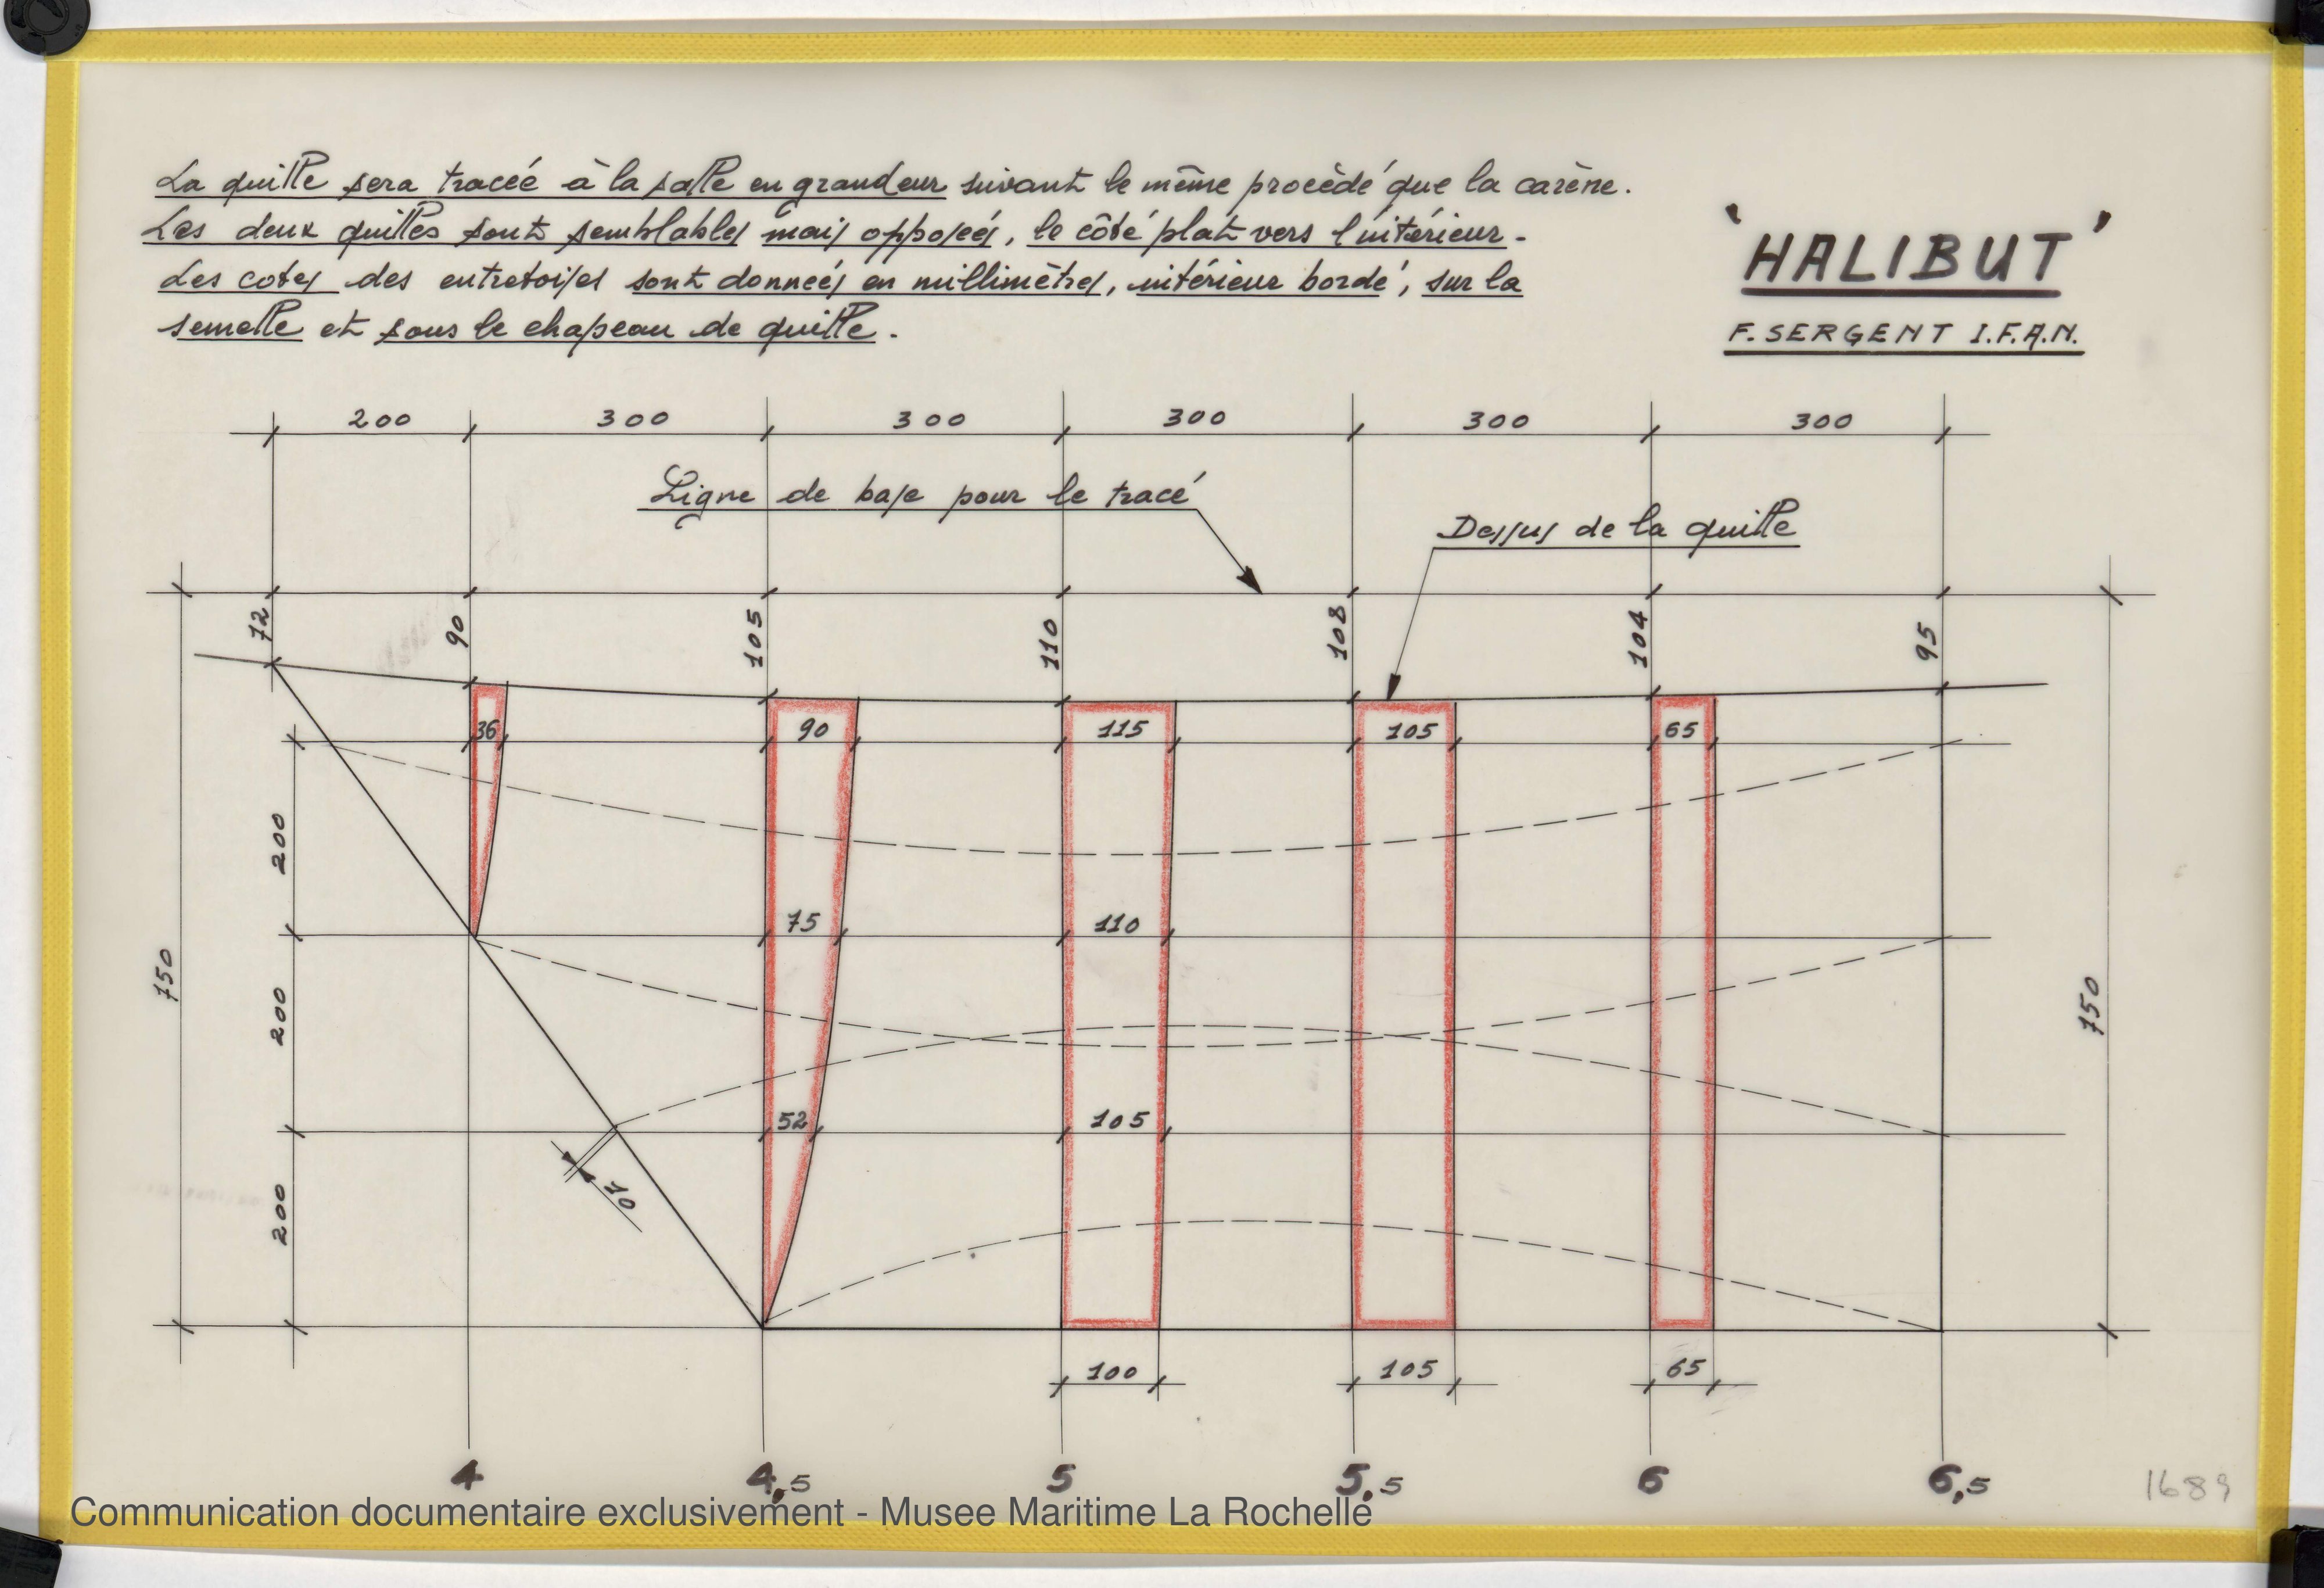 La quille sera tracée à la salle en grandeur suivant le même procédé que la carène.
Les deux quilles sont semblables mais opposées, le côté plat vers l'intérieur.
Les cotes des entretoises sont données en millimètres, intérieur bordé, sur la
semelle et sous le chapeau de quille.
'HALIBUT'
F. SERGENT I.F.A.N.
200 300 300 300 300 300
Ligne de base pour le tracé
Dessus de la quille
72 90 105 110 108 104 95
36 90 115 105 65
200
75 110
750
200
750
52 105
10
200
100 105 65
4 4,5 5 5,5 6 6,5
1689
Communication documentaire exclusivement - Musee Maritime La Rochelle